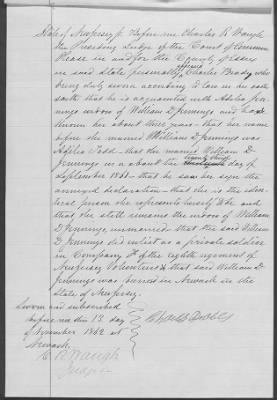 State of New Jersey ss. Before me Charles R Waugh
the Presiding Judge of the Court of Common
Pleas in and for the County of Essex
in said state personally appeared Charles who
being duly sworn according to law on his oath
saith that he is acquainted with Adelia Jen-
nings widow of William D Jennings and has
known her about years that her name
before she married William D Jennings was
Adelia Todd that she married William D
Jennings on or about the twenty third day of
September that he saw her sign the
annexed declaration that she is the iden-
tical person she represents herself to be and
that she still remains the widow of William
D Jennings, unmarried that the said William
D Jennings did enlist as a private soldier
in Company F of the eighth regiment of
New Jersey Volunteers & that said William D
Jennings was buried in Newark in the
state of New Jersey.
Sworn and subscribed
before me this 13 day
of November 1862 at
Newark
C R Waugh
Judge